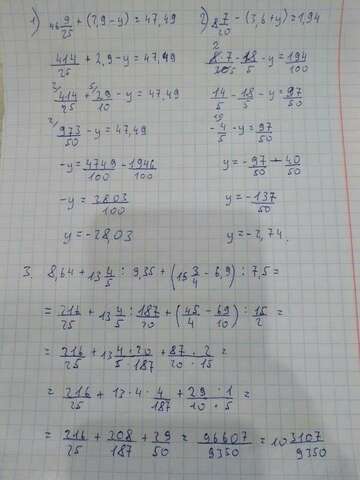 1) 46 9/25 + (2,9 - y) = 47,49
414/25 + 2,9 - y = 47,49
2/ 414/25 + 5/ 29/10 - y = 47,49
2/ 973/50 - y = 47,49
-y = 4749/100 - 1946/100
-y = 2803/100
y = -28,03
2) 8 7/20 - (3,6 + y) = 1,94
14/5 - 18/5 - y = 97/50
10 -4/5 - y = 97/50
y = -97/50 - 40/50
y = -137/50
y = -2,74.
3. 8,64 + 13 4/5 : 9,35 + (15 3/4 - 6,9) : 7,5 =
= 216/25 + 13 4/5 : 187/20 + (45/4 - 69/10) : 15/2 =
= 216/25 + 13 4·20/5·187 + 87/20 · 2/15 =
= 216/25 + 13·4·4/187 + 29·1/10·5 =
= 216/25 + 208/187 + 29/50 = 96607/9350 = 10 3107/9350